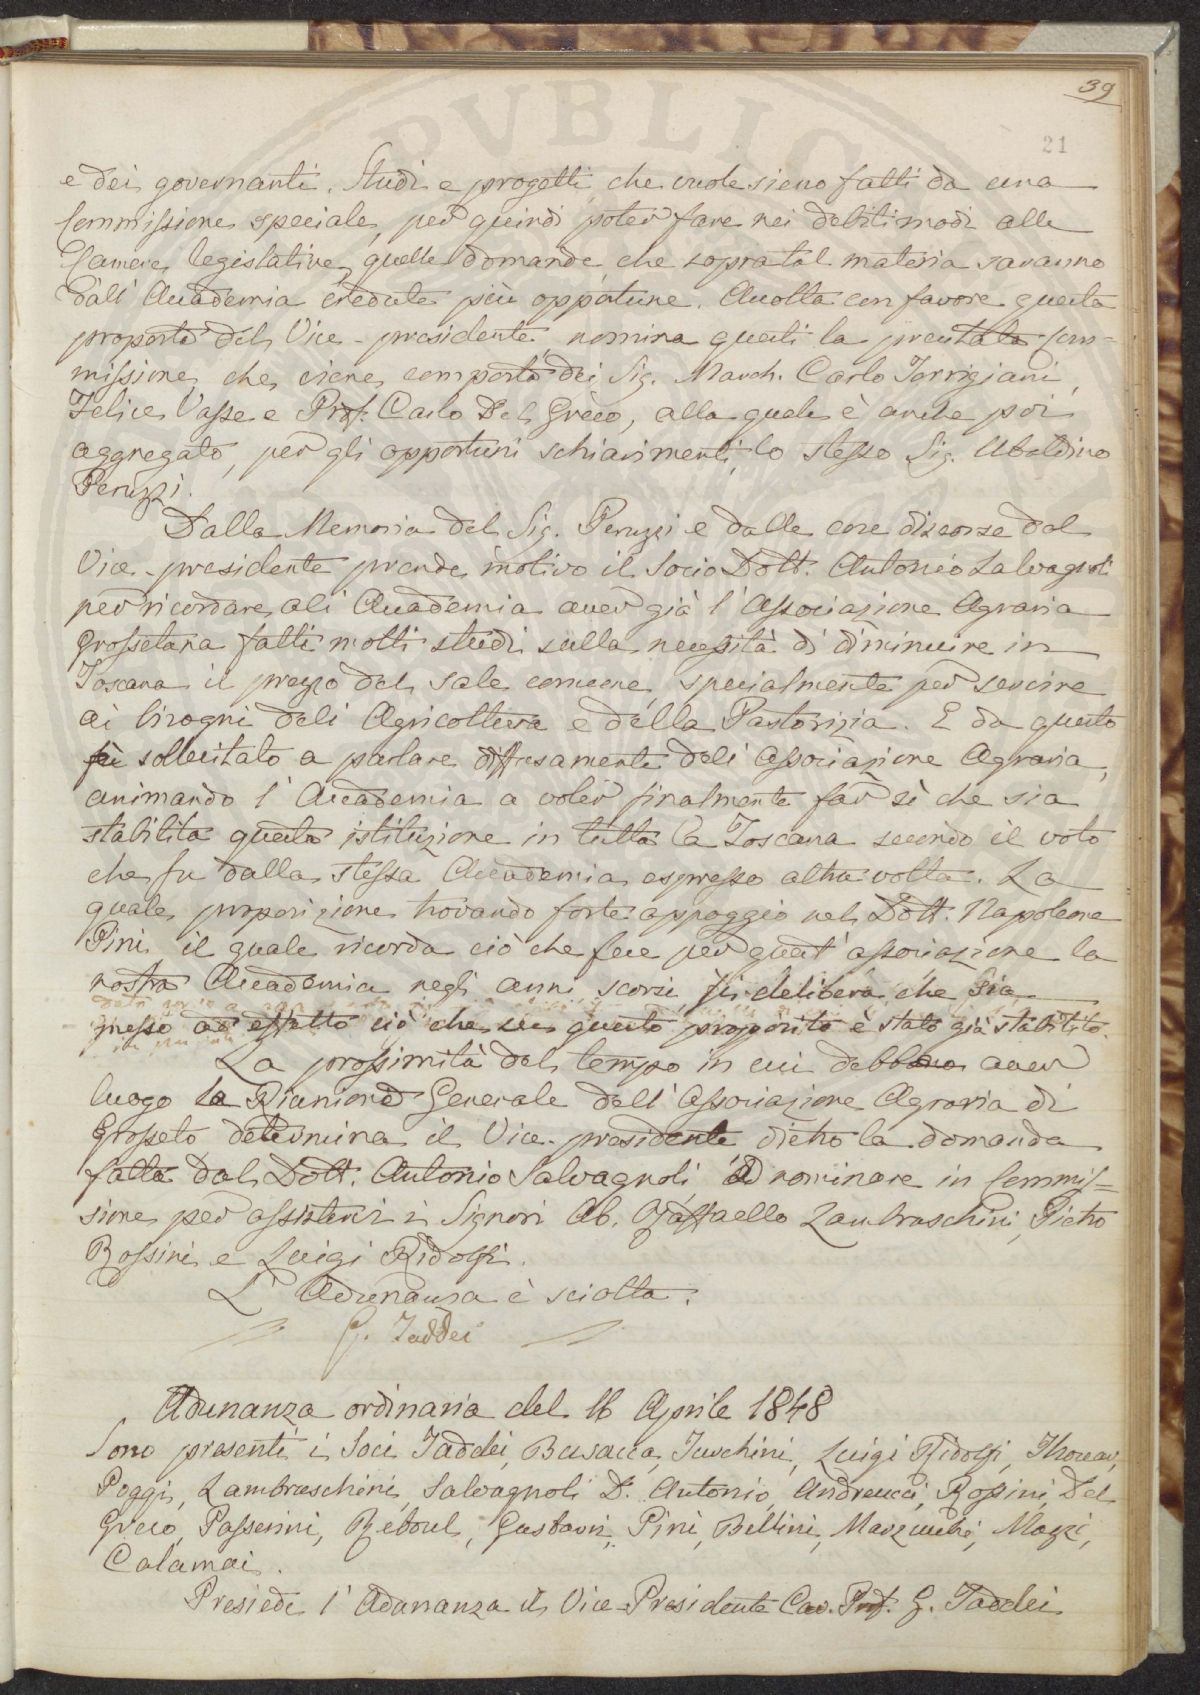 39
21
e dei governanti. Studi e progetti che vuole sieno fatti da una
Commissione speciale, per quindi poter fare nei debiti modi alle
Camere legislative quelle domande che sopra tal materia saranno
dall' Accademia credute più opportune. Accolta con favore questa
proposta del Vice-presidente nomina questi la Com=
missione che viene composta dei Sig. March. Carlo Torrigiani,
Felice Vasse e Prof. Carlo Del Greco, alla quale è anche poi
aggregato, per gli opportuni schiarimenti, lo stesso Sig. Ubaldino
Peruzzi.
Dalla Memoria del Sig. Peruzzi e dalle cose discorse dal
Vice-presidente prende motivo il Socio Dott. Antonio Salvagnoli
per ricordare all' Accademia aver già l' Associazione Agraria
Grossetana fatti molti studi sulla necessità di diminuire in
Toscana il prezzo del sale comune, specialmente per servire
ai bisogni dell' Agricoltura e della Pastorizia. E da questo
fu sollecitato a parlare diffusamente dell' Associazione Agraria,
animando l' Accademia a voler finalmente far sì che sia
stabilita questa istituzione in tutta la Toscana secondo il voto
che fu dalla stessa Accademia espresso altra volta. La
quale proposizione trovando forte appoggio nel Dott. Napoleone
Pini il quale ricorda ciò che fece per quest' associazione la
nostra Accademia negli anni scorsi si delibera che sia
messo ad effetto ciò che su questo proposito è stato già stabilito.
La prossimità del tempo in cui debbono aver
luogo la Riunione Generale dell' Associazione Agraria di
Grosseto determina il Vice-presidente dietro la domanda
fatta dal Dott. Antonio Salvagnoli ad nominare in Commis=
sione per assistervi i Signori Ab. Raffaello Lambruschini, Pietro
Rossini e Luigi Ridolfi.
L' Adunanza è sciolta.
G. Taddei
Adunanza ordinaria del 16 Aprile 1848
Sono presenti i Soci Taddei, Busacca, Turchini, Luigi Ridolfi, Thouar,
Poggi, Lambruschini, Salvagnoli D. Antonio, Andreucci, Rossini, Del
Greco, Passerini, Reboul, Gustavi, Pini, Bellini, Marzucchi, Mazzi,
Calamai.
Presiede l' Adunanza il Vice-Presidente Cav. Prof. G. Taddei